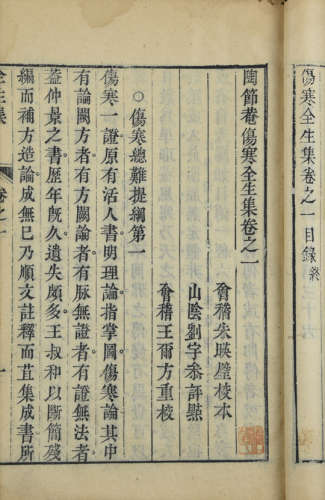 傷寒全生集卷之一目錄終
陶節菴傷寒全生集卷之一
會稽朱瑛璧校本
山陰劉宇參評點
會稽王爾方重校
○傷寒總難提綱第一
傷寒一證原有活人書明理論指掌圖傷寒論其中
有論闕方者有方闕論者有脉無證者有證無法者
葢仲景之書歷年旣久遺失頗多王叔和以斷簡殘
編而補方造論成無巳乃順文註釋而苴集成書所
全生集 卷之一 一